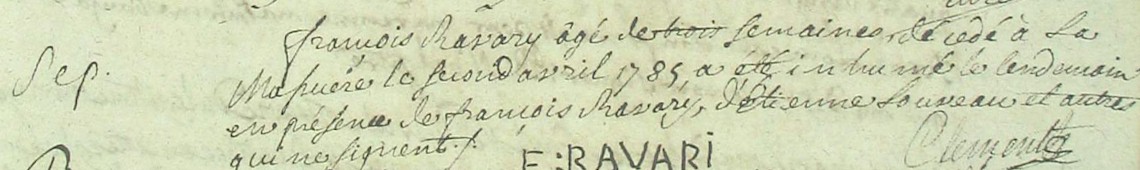 françois Ravary âgé de trois semaines, décédé à La
Sep.
Mapuére le second avril 1785 a été inhumé le lendemain
en présence de françois Ravary, d'étienne Louveau et autres
qui ne signent ./.
F:RAVARI
Clement